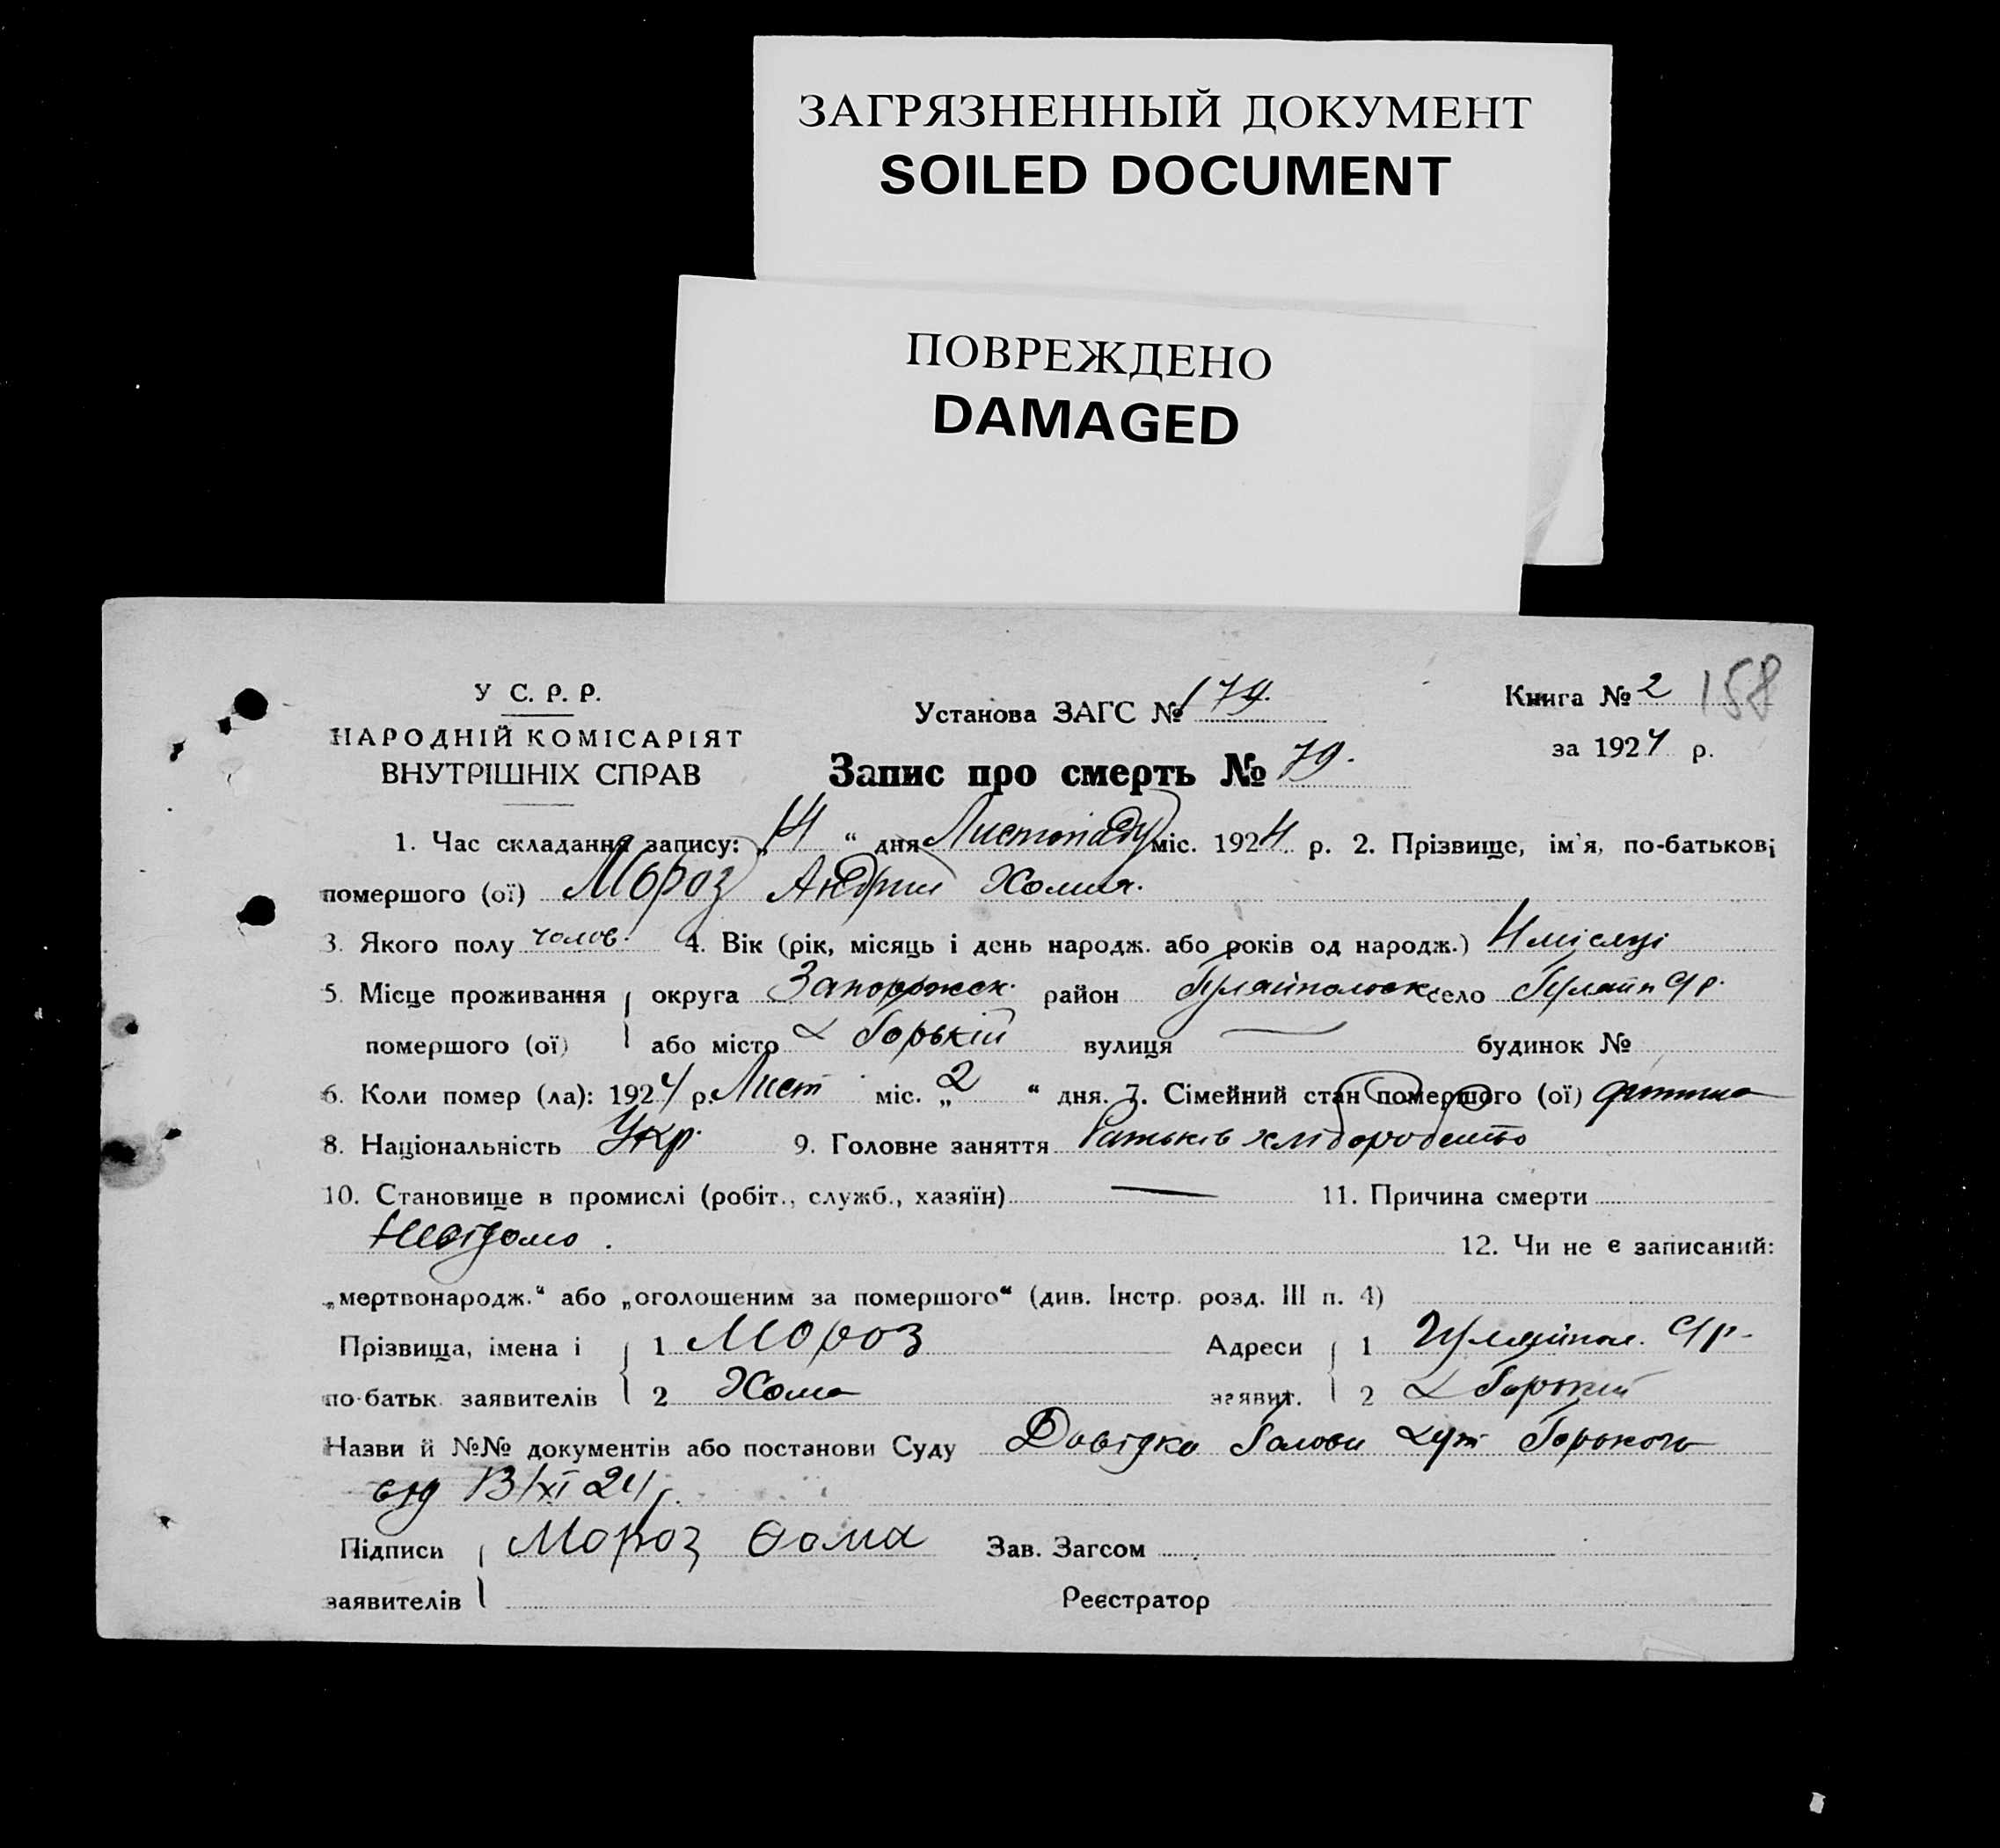 ЗАГРЯЗНЕННЫЙ ДОКУМЕНТ
SOILED DOCUMENT
ПОВРЕЖДЕНО
DAMAGED
У С. Р. Р.
НАРОДНІЙ КОМІСАРІЯТ
ВНУТРІШНІХ СПРАВ
Установа ЗАГС № 174.
Книга № 2 158
за 1924 р.
Запис про смерть № 79.
1. Час складання запису: „14“ дня Листопаду міс. 1924 р. 2. Прізвище, ім'я, по-батькові
помершого (ої) Мороз Андрий Хомич.
3. Якого полу чолов. 4. Вік (рік, місяць і день народж. або років од народж.) 4 місяці
5. Місце проживання округа Запоріжск. район Гуляйпольск село Гуляйп с/р.
помершого (ої) або місто х Горький вулиця — будинок №
6. Коли помер (ла): 1924 р. Лист міс. „2“ дня. 7. Сімейний стан помершого (ої) дитина
8. Національність Укр. 9. Головне заняття Батьків хліборобство
10. Становище в промислі (робіт., служб., хазяїн) — 11. Причина смерти
Невідомо.
12. Чи не є записаний:
„мертвонародж.“ або „оголошеним за помершого“ (див. Інстр. розд. III п. 4)
Прізвища, імена і 1 Мороз Адреси 1 Гуляйпол. с/р.
по-батьк. заявителів 2 Хома заявит. 2 х Горький
Назви й №№ документів або постанови Суду Довідка Голови хут Горького
від 13/XI 24 р.
Підписи Мороз Фома Зав. Загсом
заявителів Реєстратор